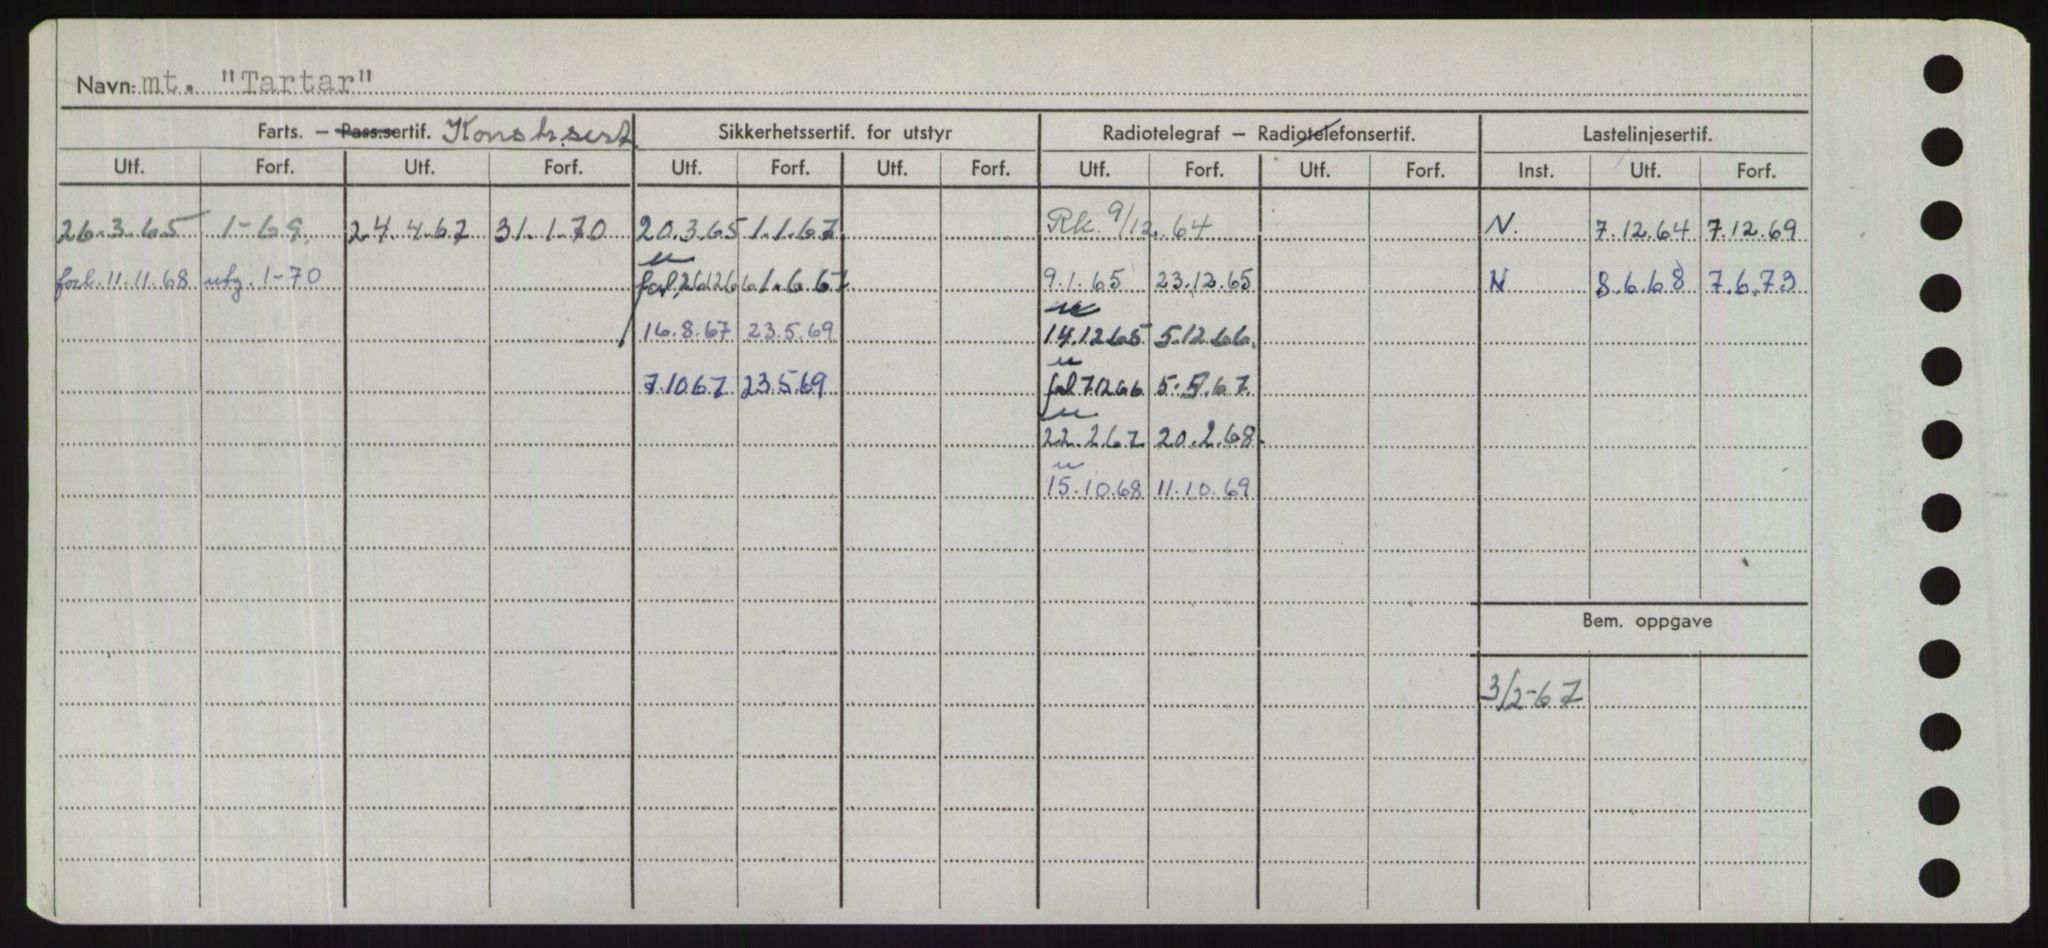 Navn: mt. "Tartar"
Farts. – Pass.sertif. Konstr.sert. Sikkerhetssertif. for utstyr Radiotelegraf – Radiotelefonsertif. Lastelinjesertif.
Utf. Forf. Utf. Forf. Utf. Forf. Utf. Forf. Utf. Forf. Utf. Forf. Inst. Utf. Forf.
26.3.65 1-69. 24.4.67 31.1.70 20.3.65 1.1.67 Rk. 9/12.64 N. 7.12.64 7.12.69
forl. 11.11.68 utg. 1-70 forl. 1.6.67 9.1.65 23.12.65 N 8.6.68 7.6.73
16.8.67 23.5.69 14.12.65 5.12.66.
7.10.67 23.5.69 forl 71266 5.5.67.
22.2.67 20.2.68.
15.10.68 11.10.69
Bem. oppgave
3/2-67